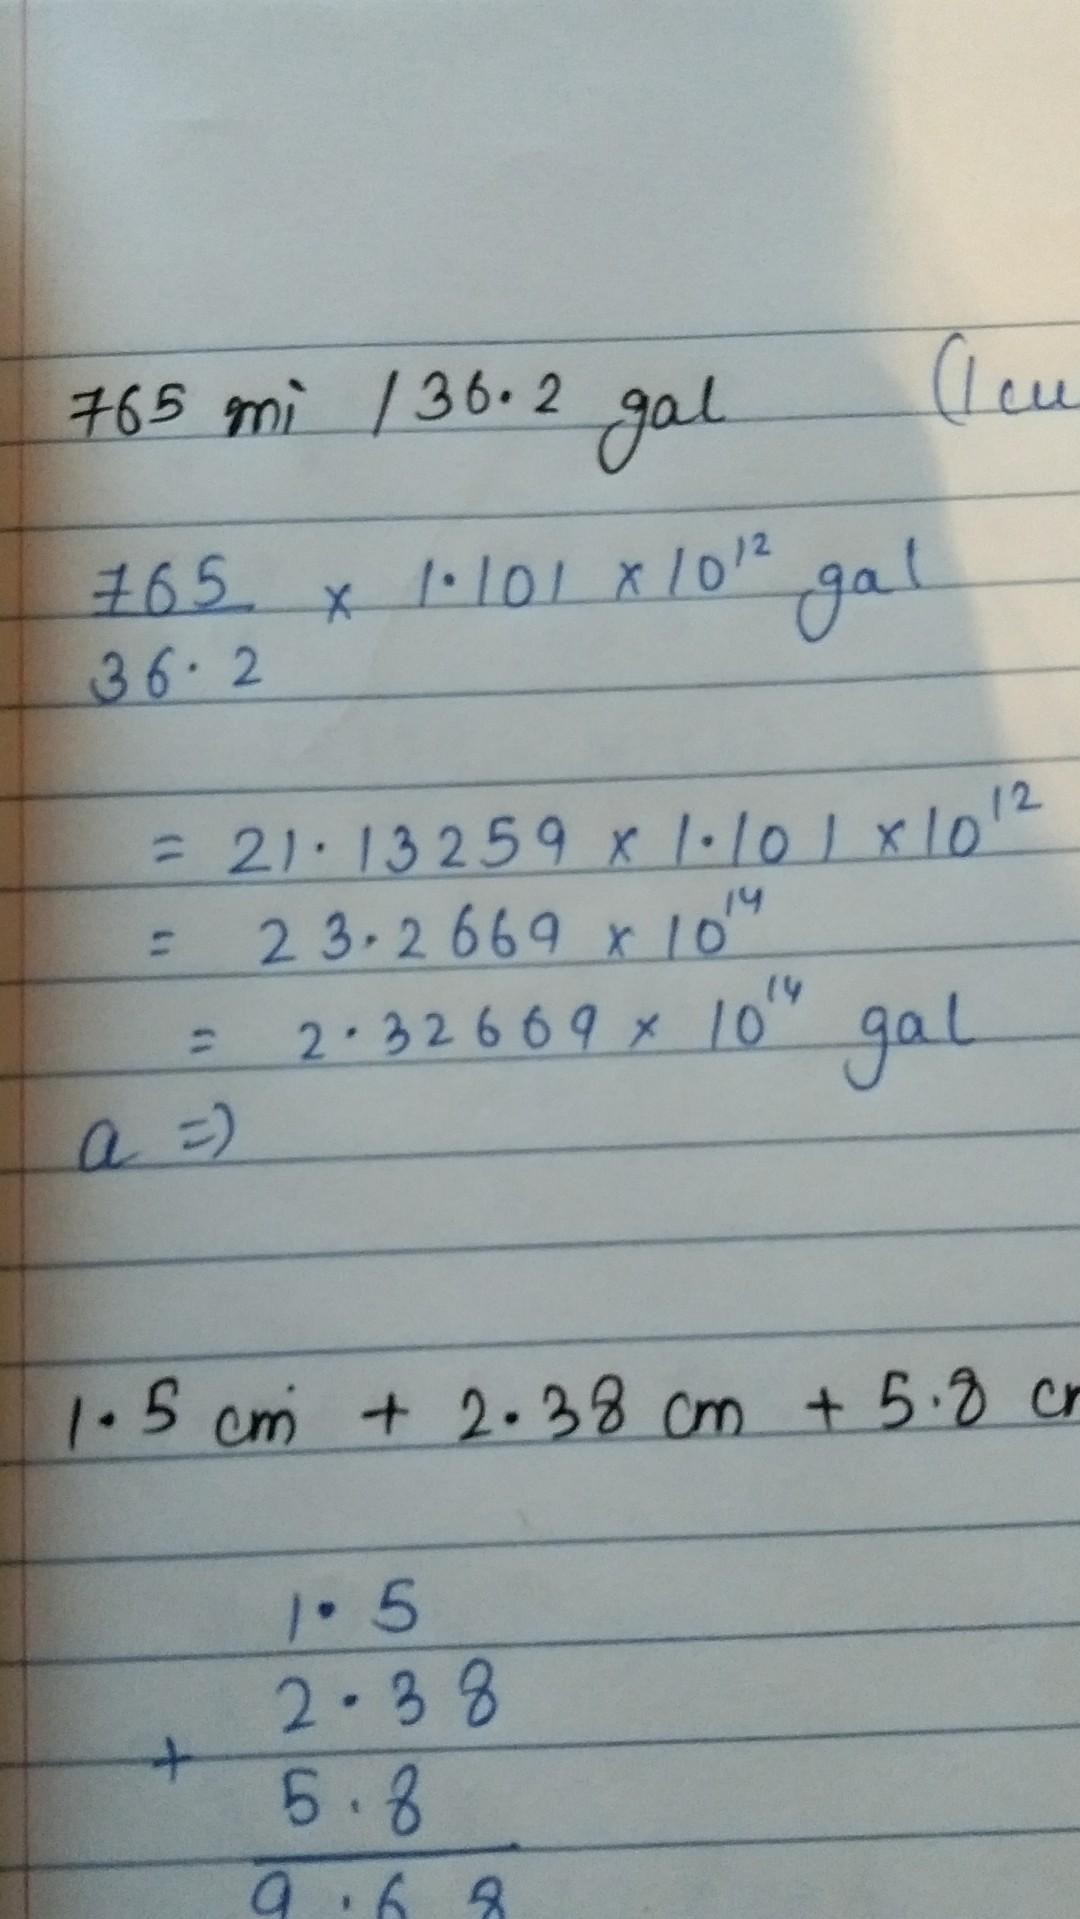 765 mi / 36.2 gal (1 cu
765
36.2 × 1.101 × 10¹² gal
= 21.13259 × 1.101 × 10¹²
= 23.2669 × 10¹⁴
= 2.32669 × 10¹⁴ gal
a =>
1.5 cm + 2.38 cm + 5.8 cm
1.5
2.38
+ 5.8
9.68